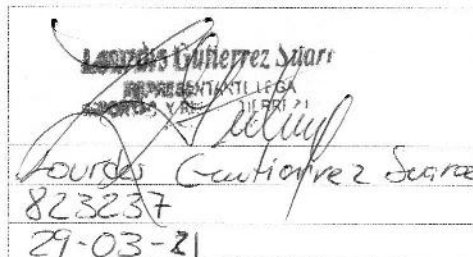 Lourdes Gutierrez Suar
REPRESENTANTE LEGA
Lourdes Gutierrez Suarez
823237
29-03-21